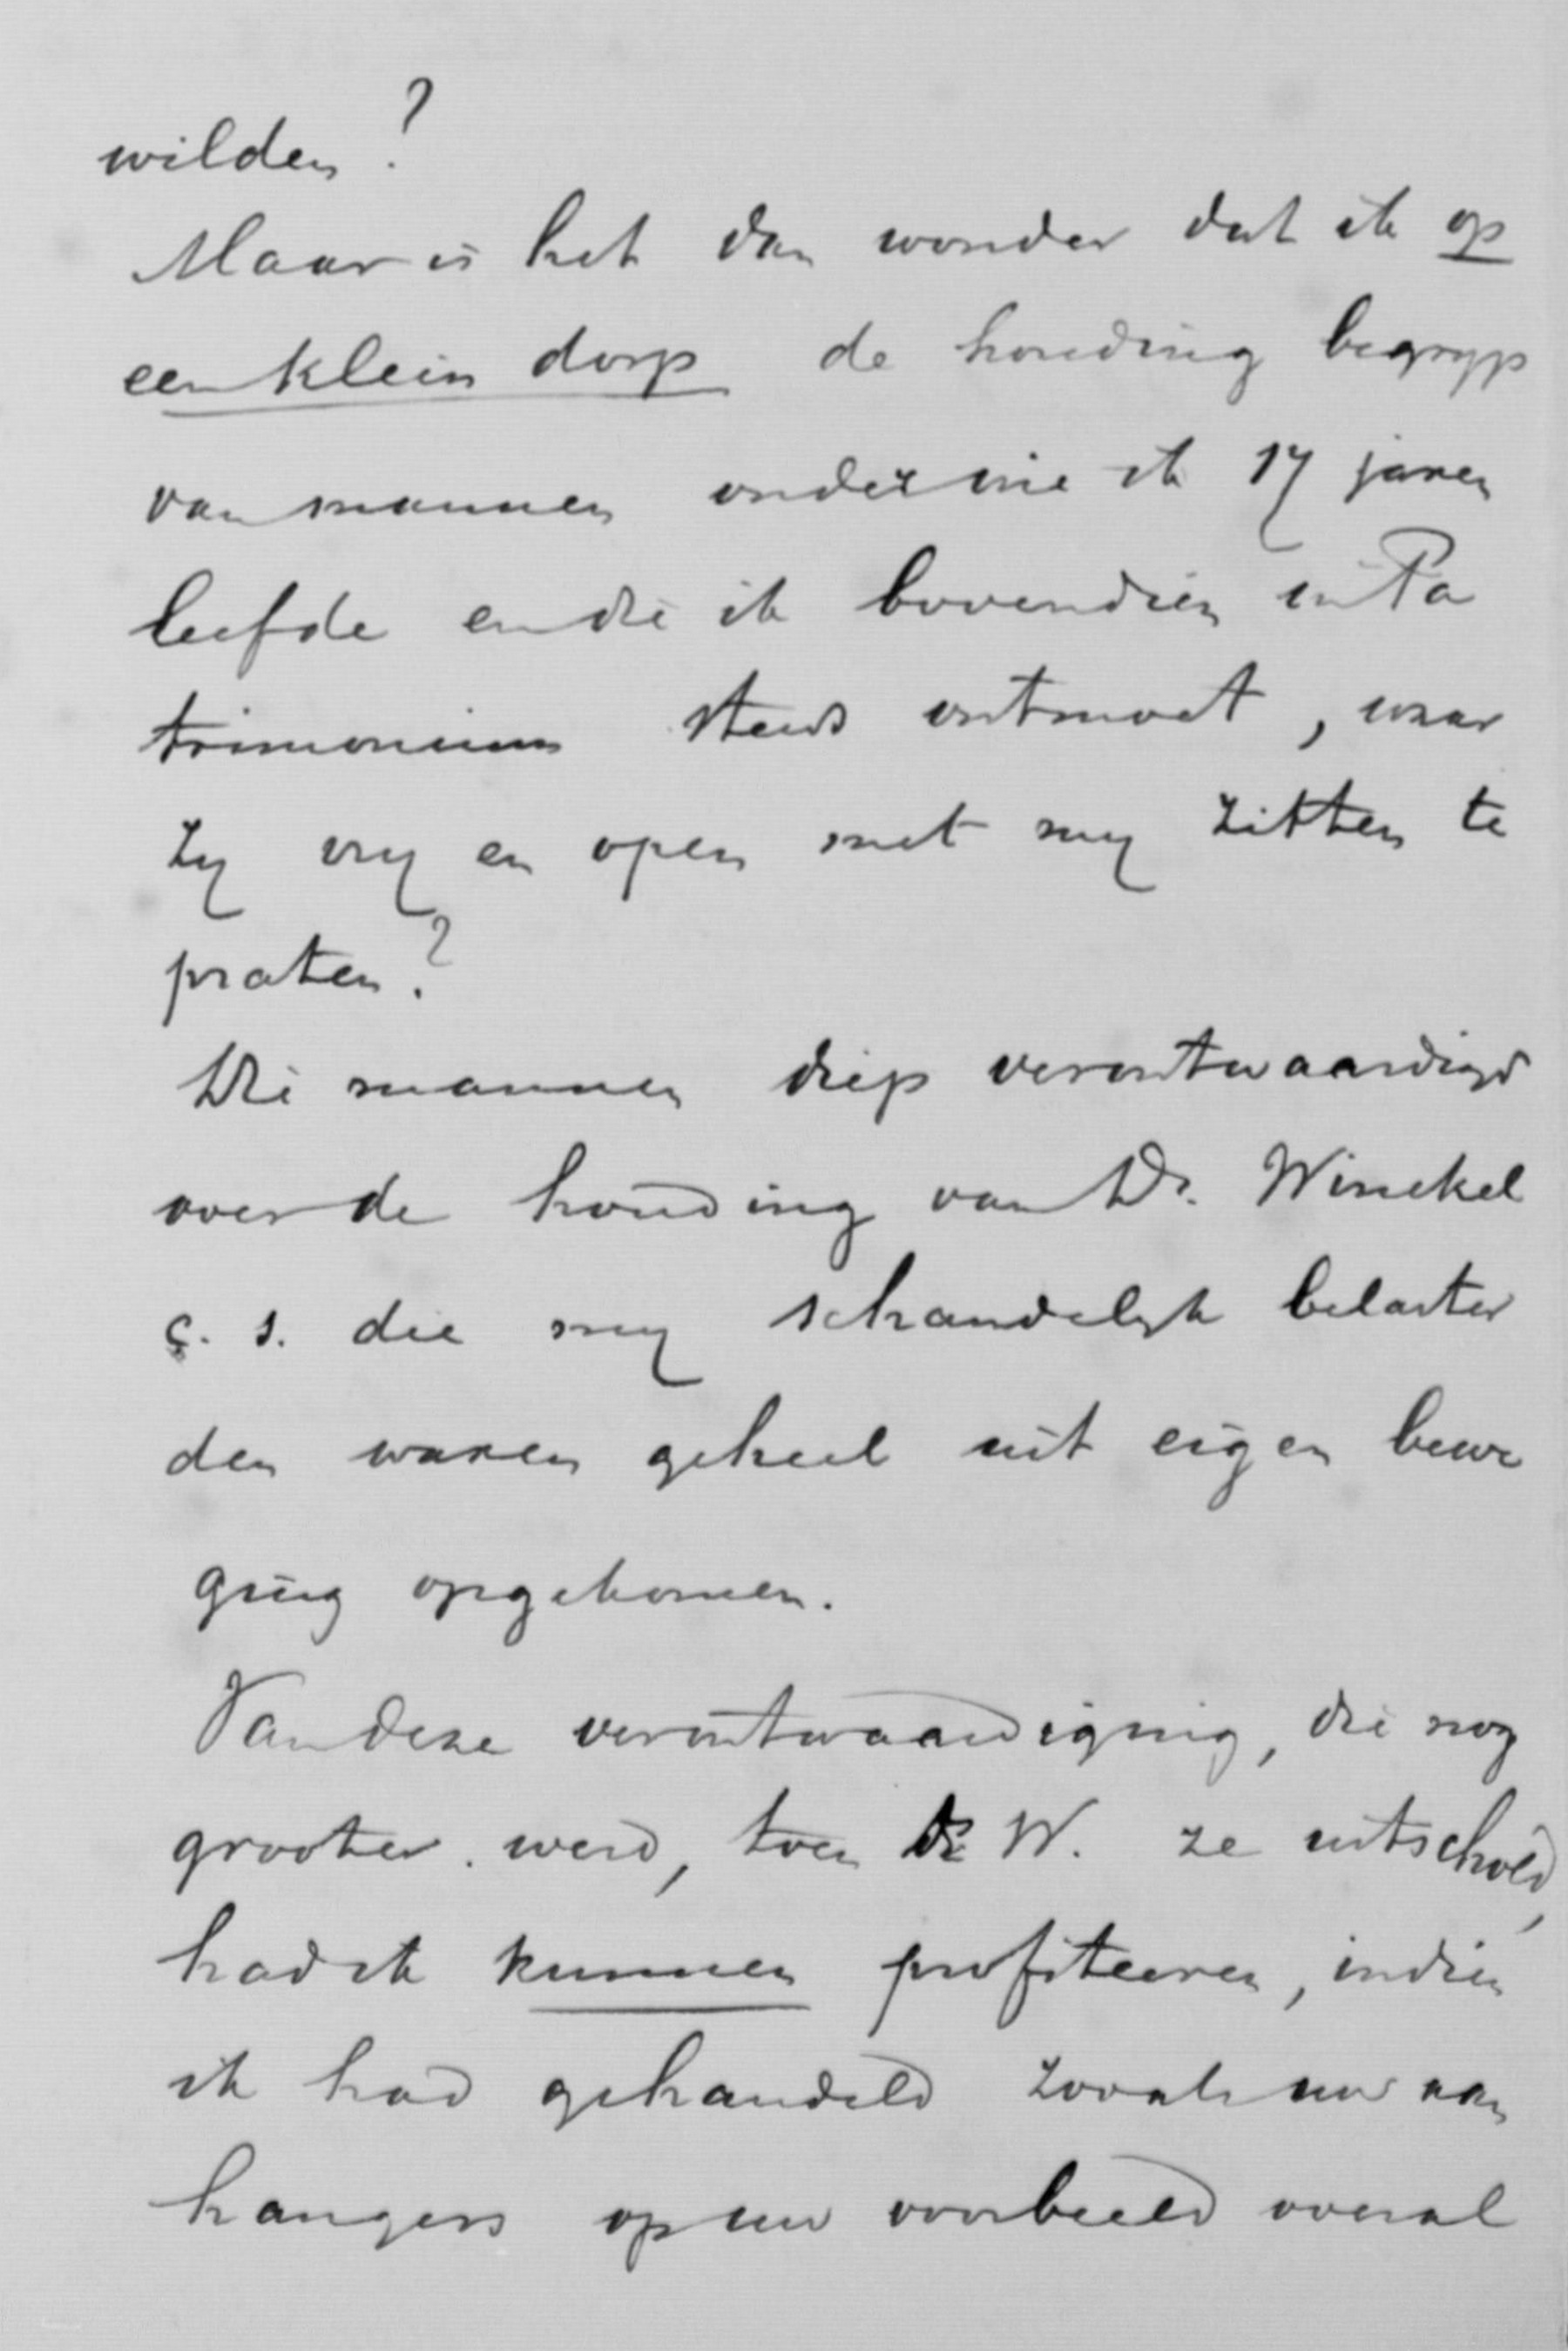 wilden?
Maar is het dan wonder dat ik op
een klein dorp de houding begryp
van mannen onder wie ik 17 jaren
leefde en die ik bovendien in Pa
trimonium steeds ontmoet, waar
zy vry en open met my zitten te
praten?
Die mannen diep verontwaardigd
over de houding van Dr. Winckel
c.s. die my schandelyk belaster
den waren geheel uit eigen bewe
ging opgekomen.
Van deze verontwaardiging, die nog
grooter werd, toen Dr W. ze uitschold,
had ik kunnen profiteeren, indien
ik had gehandeld zooals uw aan
hangers op uw voorbeeld overal